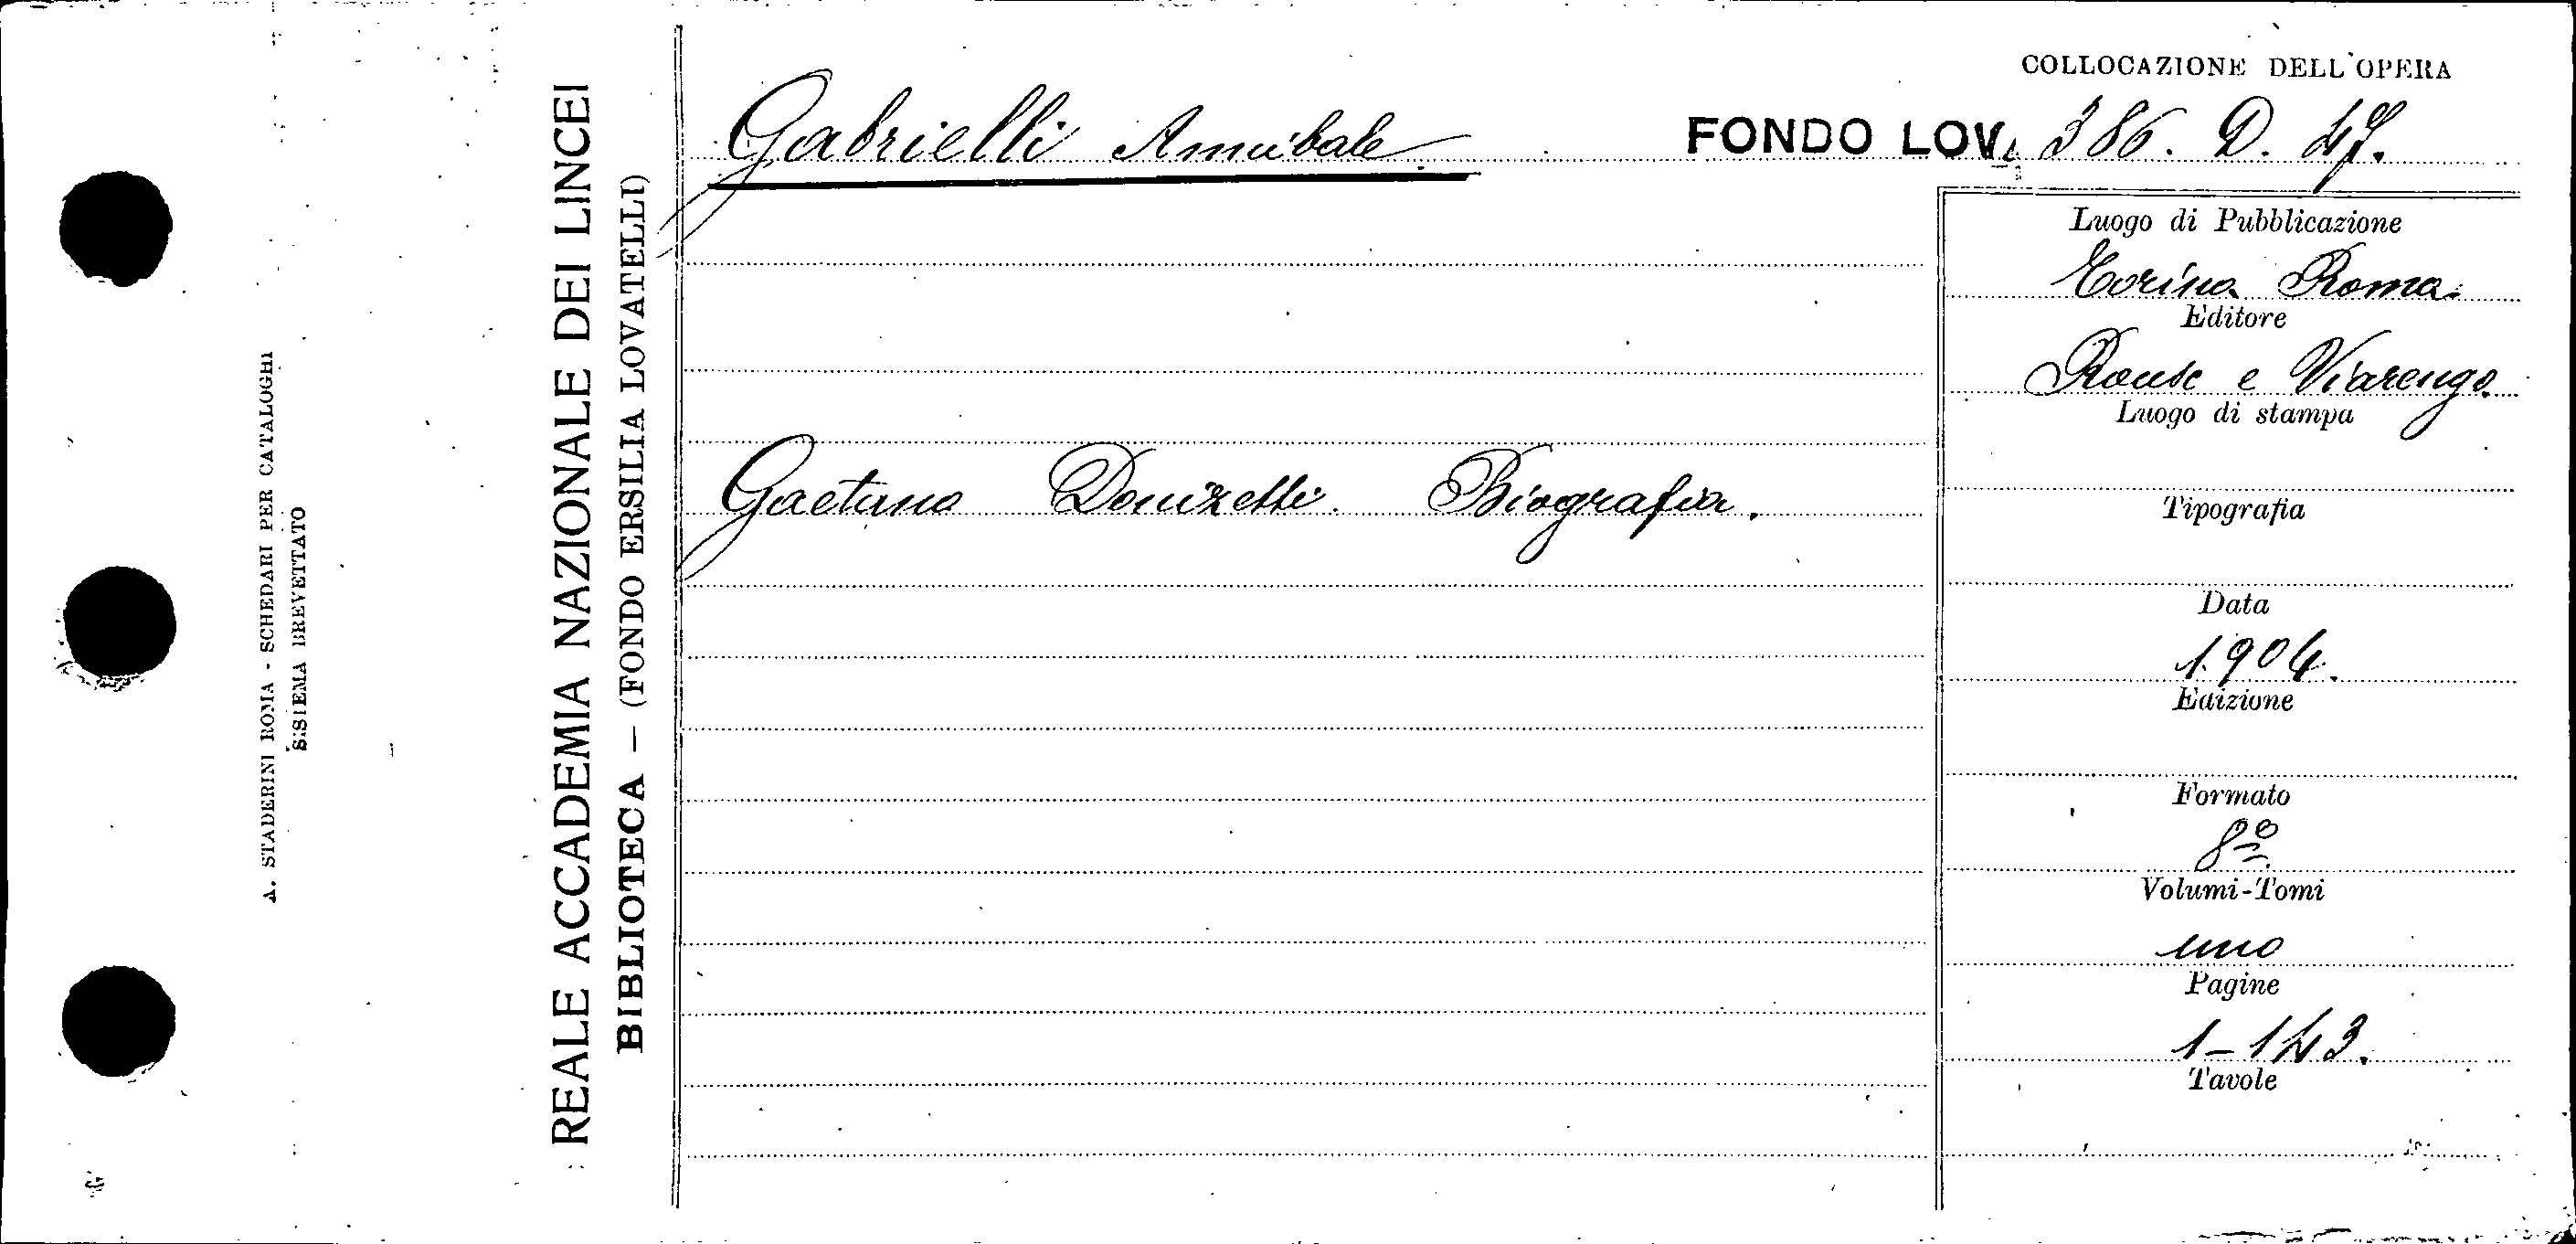 A. STADERINI ROMA - SCHEDARI PER CATALOGHI
SISTEMA BREVETTATO
REALE ACCADEMIA NAZIONALE DEI LINCEI
BIBLIOTECA — (FONDO ERSILIA LOVATELLI)
COLLOCAZIONE DELL'OPERA
Gabrielli Annibale
FONDO LOV. 386. D. 47.
Luogo di Pubblicazione
Torino Roma.
Editore
Roux e Viarengo.
Luogo di stampa
Gaetano Donizetti. Biografia.
Tipografia
Data
1904.
Edizione
Formato
8º
Volumi-Tomi
uno
Pagine
1-143.
Tavole